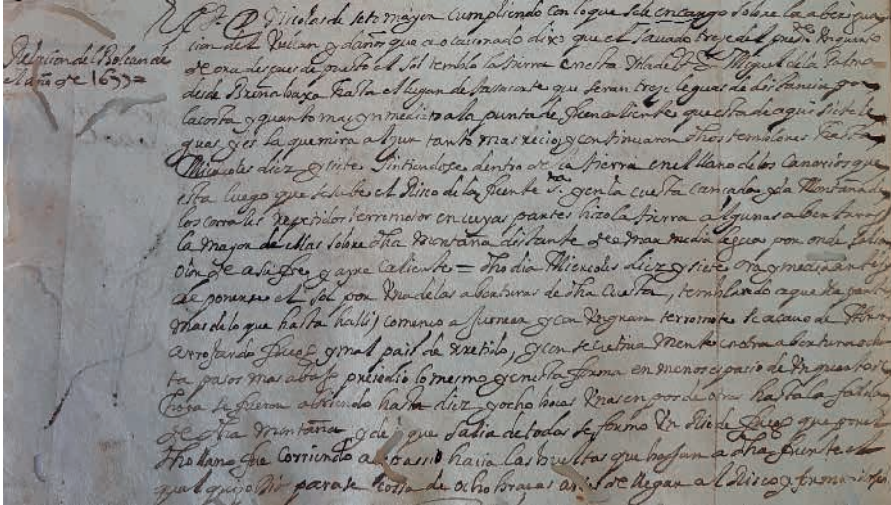 Relacion del Bolcan de
el año de 1677=
Nicolas de sotomayor cumpliendo con lo que se le encargo sobre la aberigua
cion del Vulcan y daños que a ocacionado dixo que el savado treze del press.te Un quarto
de ora despues de puesto el Sol temblo la tierra en esta Ysla de S. Miguel de la Palma
desde Breña baxa hasta el lugar de tasacorte que seran treze leguas de distancia por
la costa y quanto mas ynmediato a la punta de fuencaliente que esta de aqui siete le
guas, y es la que mira al sur tanto mas recio, y continuaron dhos temblores hasta
Miercoles diez y siete Sintiendose dentro de la tierra en el llano de los Canarios que
esta luego que se sube el Risco de la fuente s.ta y en la cuesta cansada y la Montaña de
los corrales repetidos terremotos en cuyas partes hizo la tierra algunas aberturas
la mayor de ellas sobre dha montaña distante de la mar media legua por onde salio
olor de asufre y ayre caliente = dho dia Miercoles diez y siete ora y media antes
de ponerse el Sol por Una de las aberturas de dha Cuesta, temblando aquella parte
mas de lo que hasta halli, comenso a fumear y con Un gran terromote se acavo de
arrojando fuego y mal pais de rretido, y consecutivamente en otra abertura ochen
ta pasos mas abajo presedio lo mesmo y en esta forma en menos espasio de Un quarto de
hora se fueron abriendo hasta diez y ocho bocas Unas en pos de otras hasta la falda
de dha montaña y de que salia de todas se formo Un Rio de fuego que por el
dho llano fue corriendo despasio hacia las bueltas que bajan a dha fuente el
qual quiso Dios parase cossa de ocho brasas antes de llegar al Risco y formo